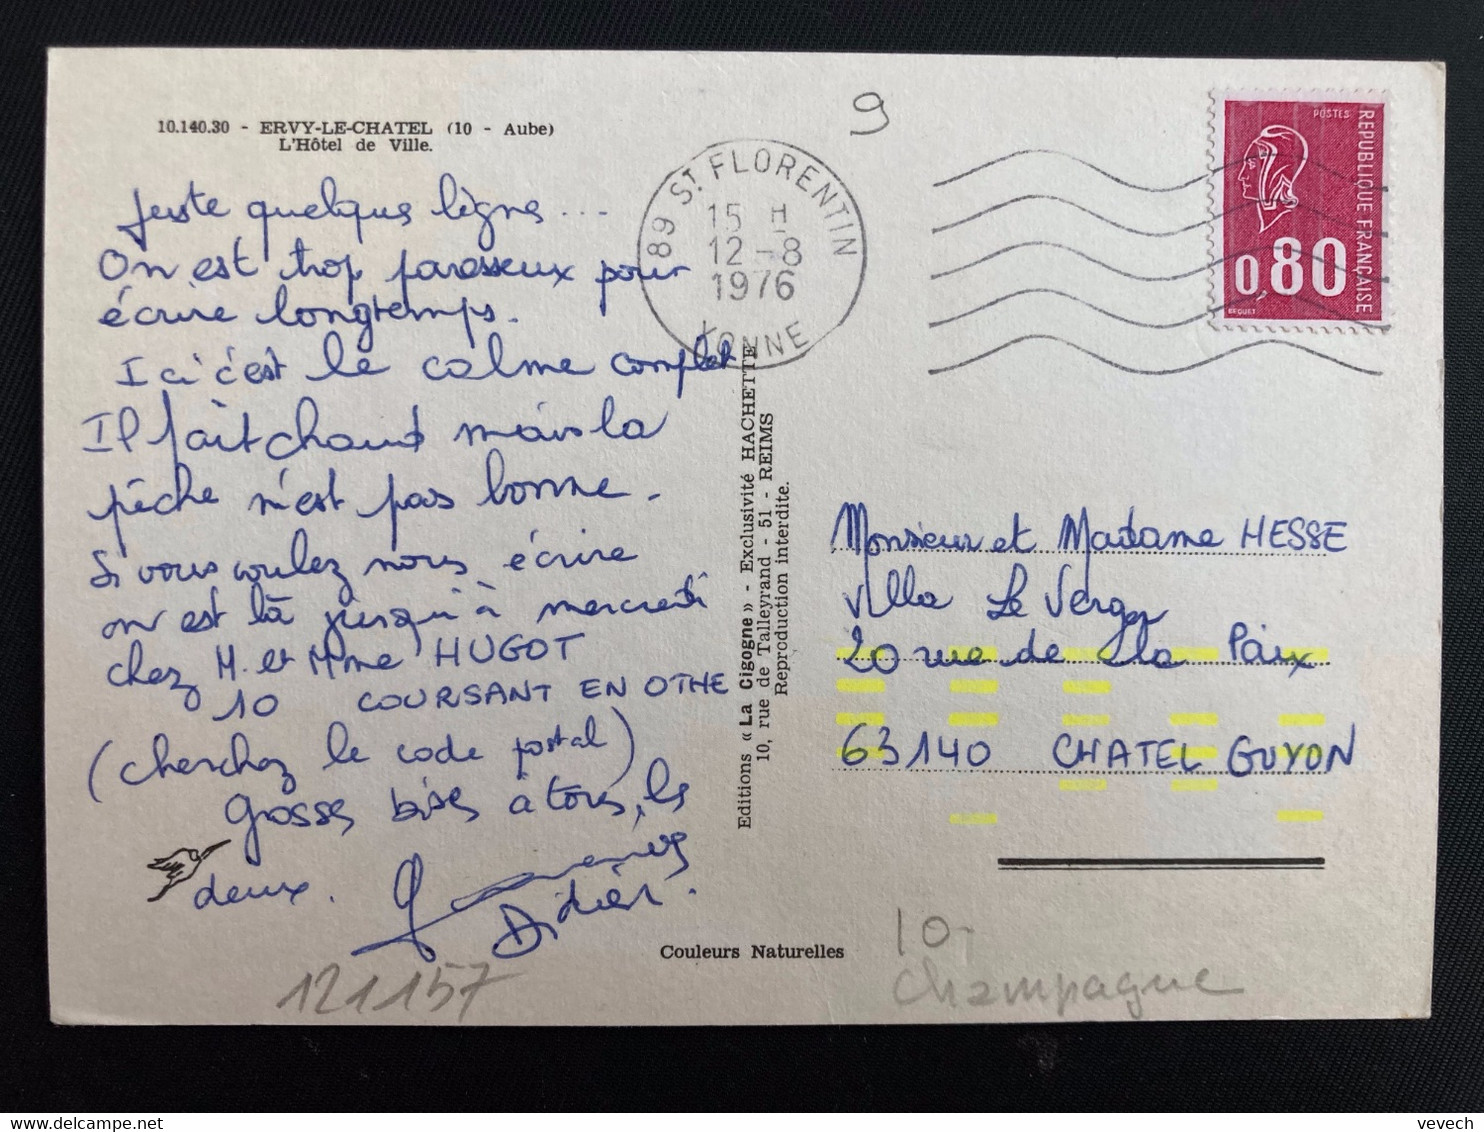 10.140.30 - ERVY-LE-CHATEL (10 - Aube)
L'Hôtel de Ville.
Juste quelques lignes ...
On est trop paresseux pour
écrire longtemps.
Ici c'est le calme complet
Il fait chaud mais la
pêche n'est pas bonne.
Si vous voulez nous écrire
on est là jusqu'à mercredi
chez M. et Mme HUGOT
10 COURSANT EN OTHE
(cherchez le code postal)
Grosses bises à tous, les
deux.
Didier.
121157
9
89 ST FLORENTIN
15 H
12-8
1976
YONNE
POSTES
REPUBLIQUE FRANÇAISE
0,80
BEQUET
Editions « La Cigogne » - Exclusivité HACHETTE
10, rue de Talleyrand - 51 - REIMS
Reproduction interdite.
Monsieur et Madame HESSE
Villa Le Verger
20 rue de la Paix
63140 CHATEL GUYON
Couleurs Naturelles
10-
Champagne
vevech